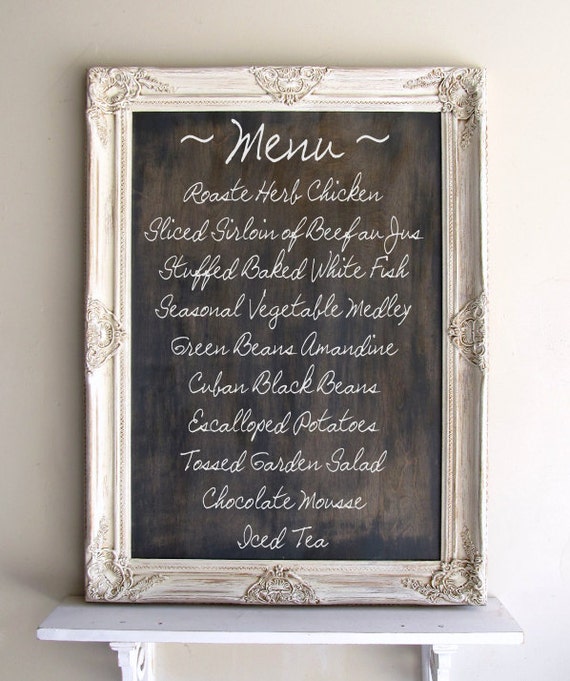 ~ Menu ~
Roaste Herb Chicken
Sliced Sirloin of Beef au Jus
Stuffed Baked White Fish
Seasonal Vegetable Medley
Green Beans Amandine
Cuban Black Beans
Escalloped Potatoes
Tossed Garden Salad
Chocolate Mousse
Iced Tea